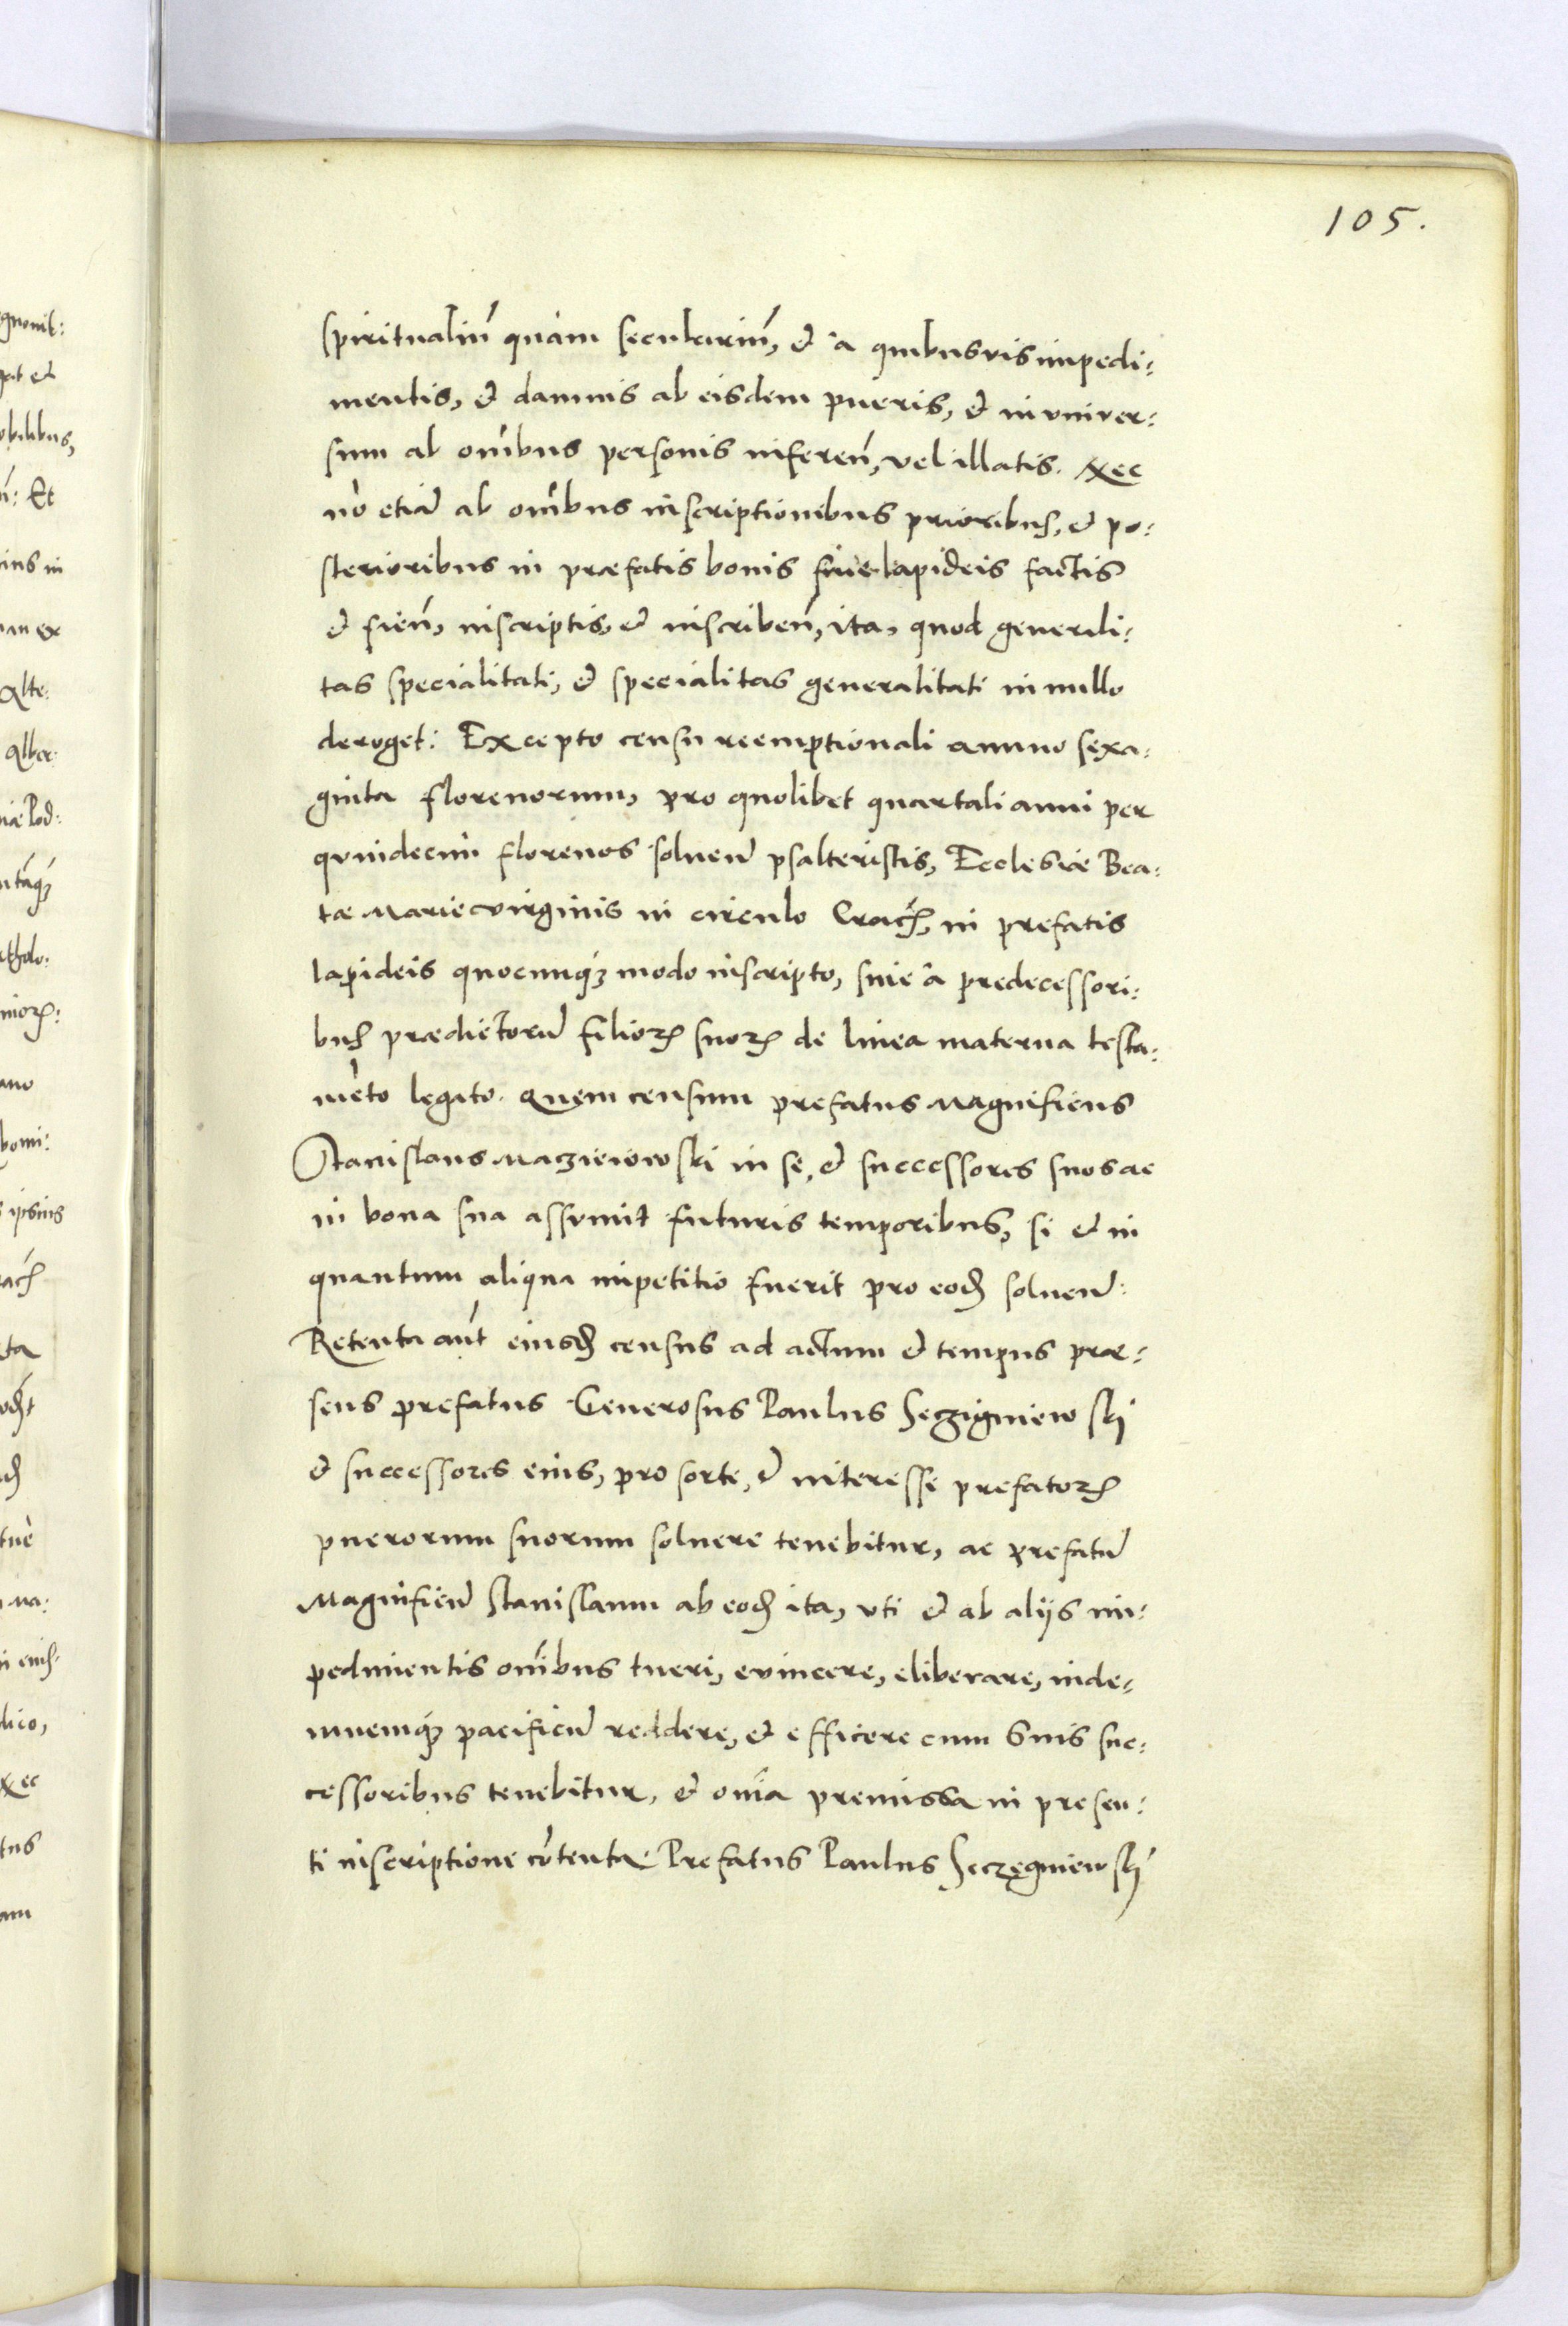 105.
spiritualiũ quàm seculariũ, et à quibusvis impedi:
mentis, et damnis ab eisdem pueris, et in univer:
sum ab oĩbus personis inferen̄, vel illatis. Nec
nō etiā ab oĩbus inscriptionibus prioribus, et po:
sterioribus in præfatis bonis siue lapideis factis
et fien̄, inscriptis, et inscriben̄, ita, quod generali:
tas specialitati, et specialitas generalitati in nullo
deroget: Excepto censu reemptionali annuo sexa:
ginta florenorum, pro quolibet quartali anni per
quindecim florenos soluend̄ psalteristis, Ecclesiæ Bea:
tæ Marie virginis in circulo Crac̄, in prefatis
lapideis quocunq3 modo inscripto, siue à predecessori:
bus prædictorū filioꝝ suoꝝ de linea materna testa:
mēto legato. Quem censum prefatus Magnificus
Stanislaus Maczieiowski in se, et successores suos ac
in bona sua assumit futuris temporibus, si et in
quantum aliqua impetitio fuerit pro eod̄ soluend̄:
Retenta aūt eiusd̄ census ad actum et tempus præ:
sens prefatus Generosus Paulus Seczigniewski
et successores eius, pro sorte, et interesse prefatoꝝ
puerorum suorum soluere tenebitur, ac prefatū
Magnificū Stanislaum ab eod̄ ita, uti et ab alijs im:
pedimentis oĩbus tueri, evincere, eliberare, inde:
mnemq3 pacificū reddere, et efficere cum suis suc:
cessoribus tenebitur, et oĩa premissa in presen:
ti inscriptione cōtenta. Prefatus Paulus Seczęgniewski